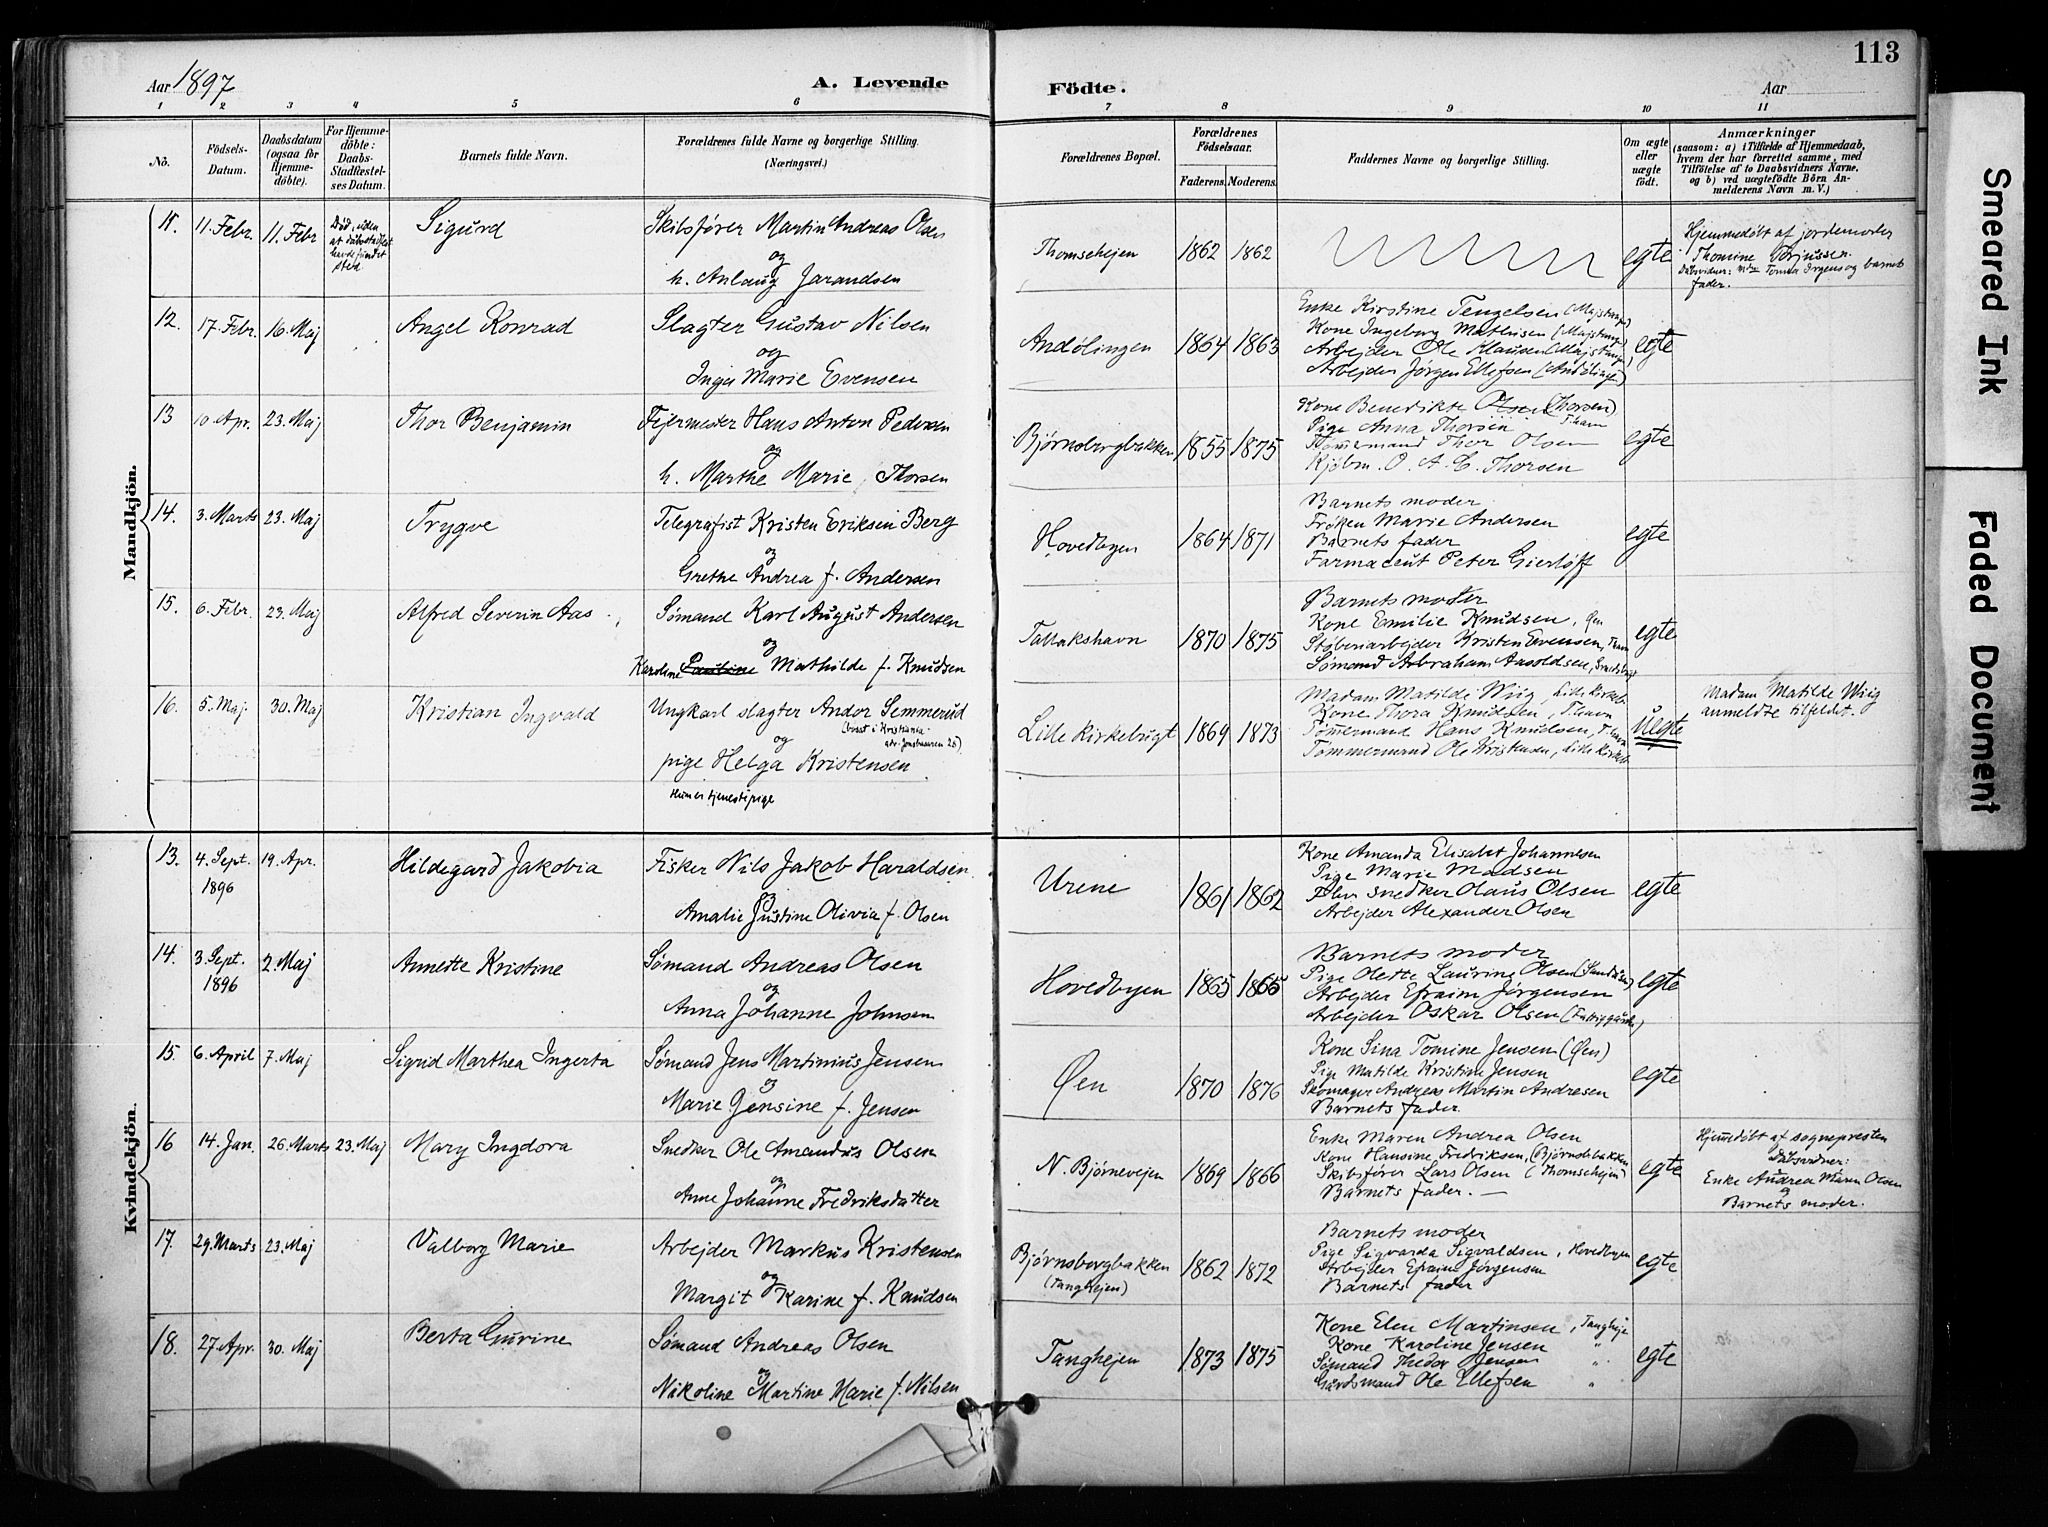 113
Aar 1897
A. Levende
Födte.
Aar
1 2 3 4 5 6 7 8 9 10 11
No.
Födsels-
Datum.
Daabsdatum
(ogsaa for
Hjemme-
döbte).
For Hjemme-
döbte:
Daabs-
Stadfæstel-
ses Datum.
Barnets fulde Navn.
Forældrenes fulde Navne og borgerlige Stilling.
(Næringsvei.)
Forældrenes Bopæl.
Forældrenes
Födselsaar.
Faderens.
Moderens.
Faddernes Navne og borgerlige Stilling.
Om ægte
eller
uægte
födt.
Anmærkninger
(saasom: a) i Tilfælde af Hjemmedaab,
hvem der har forrettet samme, med
Tilföielse af to Daabsvidners Navne,
og b) ved uægtefödte Börn An-
melderens Navn m. V.)
Mandkjön.
11. 11. Febr. 11. Febr
Død, uden
at dåbsstadfest
havde fundet
sted
Sigurd
Skibsfører Martin Andreas Olsen
og
h. Anlaug Jarandsen
Thomsehejen 1862 1862
egte
Hjemmedøbt af jordemoder
Thomine
Dåbsvidner: og barnets
fader.
12. 17. Febr. 16. Maj
Angel Konrad
Slagter Gustav Nilsen
og
Inga Marie Evensen
Andølingen 1864 1863
Enke Kirstine Tengelsen
Kone Ingeborg Mathisen
Arbejder Ole Klausen
Arbejder Jørgen Ellefsen (Andølingen)
egte
13 10. Apr. 23. Maj
Thor Benjamin
Fejermester Hans Anton Pedersen
og
h. Marthe Marie Thorsen
Bjørnsbergbakken 1855 1875
Kone Benedikte Olsen (Thorsen)
Pige Anna Thorsen
Tømermand Thor Olsen
Kjøbm. O. A. C. Thorsen
egte
14. 3. Marts 23. Maj
Trygve
Telegrafist Kristen Eriksen Berg
og
Grethe Andrea f. Andersen
Hovedbyen 1864 1871
Barnets moder
Frøken Marie Andersen
Barnets fader
Farmaceut Peter Gierløff
egte
15. 6. Febr. 23. Maj
Alfred Severin Aas
Sømand Karl August Andersen
og
Karoline Pauline Mathilde f. Knudsen
Tallakshavn 1870 1875
Barnets moder
Kone Emilie Knudsen, Øen
Støberiarbejder Kristen Evensen,
Sømand Abraham Aasoldsen,
egte
16. 5. Maj. 30. Maj
Kristian Ingvald
Ungkarl slagter Andor Semmerud
(bosat i Kristiania
og
pige Helga Kristensen
Hun er tjenestepige
Lille Kirkebugt 1869 1873
Madam Matilde Wiig, Lille Kirkeb.
Kone Thora Knudsen, T.havn
Tømermand Hans Knudsen, T.havn
Tømmermand Ole Kristensen, Lille Kirkeb.
uegte
Madam Matilde Wiig
anmeldte tilfeldet.
Kvindekjön.
13. 4. Sept.
1896
19. Apr.
Hildegard Jakobia
Fisker Nils Jakob Haraldsen
og
Amalie Justine Olivia f. Olsen
Urene 1861 1862
Kone Amanda Elisabet Johannesen
Pige Marie Madsen
snedker Olaus Olsen
Arbejder Alexander Olsen
egte
14. 3. Sept.
1896
2. Maj
Annette Kristine
Sømand Andreas Olsen
og
Anna Johanne Johnsen
Hovedbyen 1865 1865
Barnets moder
Pige Olette Laurine Olsen
Arbejder Efraim Jørgensen
Arbejder Oskar Olsen
egte
15. 6. April 7. Maj
Sigrid Marthea Ingerta
Sømand Jens Martinius Jensen
og
Marie Jensine f. Jensen
Øen 1870 1876
Kone Sina Tomine Jensen (Øen)
Pige Matilde Kristine Jensen
Skomager Andreas Martin Andresen
Barnets fader.
egte
16 14. Jan. 26. Marts 23. Maj
Mary Ingdora
Snedker Ole Amandus Olsen
og
Anne Johanne Fredriksdatter
N. Bjørnevejen 1869 1866
Enke Maren Andrea Olsen
Kone Hansine Fredriksen, (Bjørnsbbakken
Skibsfører Lars Olsen (Thomsehejen)
Barnets fader. —
egte
Hjemmedøbt af sognepresten
Dåbsvidner:
Enke Andrea Maren Olsen
og
Barnets moder.
17. 29. Marts 23. Maj
Valborg Marie
Arbejder Markus Kristensen
og
Margit Karine f. Knudsen
Bjørnsbergbakken
(Tanghejen)
1862 1872
Barnets moder
Pige Sigvarda Sigvaldsen, Hovedbyen
Arbejder Efraim Jørgensen
Barnets fader
egte
18. 27. Apr. 30. Maj
Berta Gurine
Sømand Andreas Olsen
og
Nikoline Martine Marie f. Nilsen
Tanghejen 1873 1875
Kone Elen Martinsen, Tangheje
Kone Karoline Jensen "
Sømand Thedor Jensen "
Gårdsmand Ole Ellefsen "
egte
Smeared Ink
Faded Document